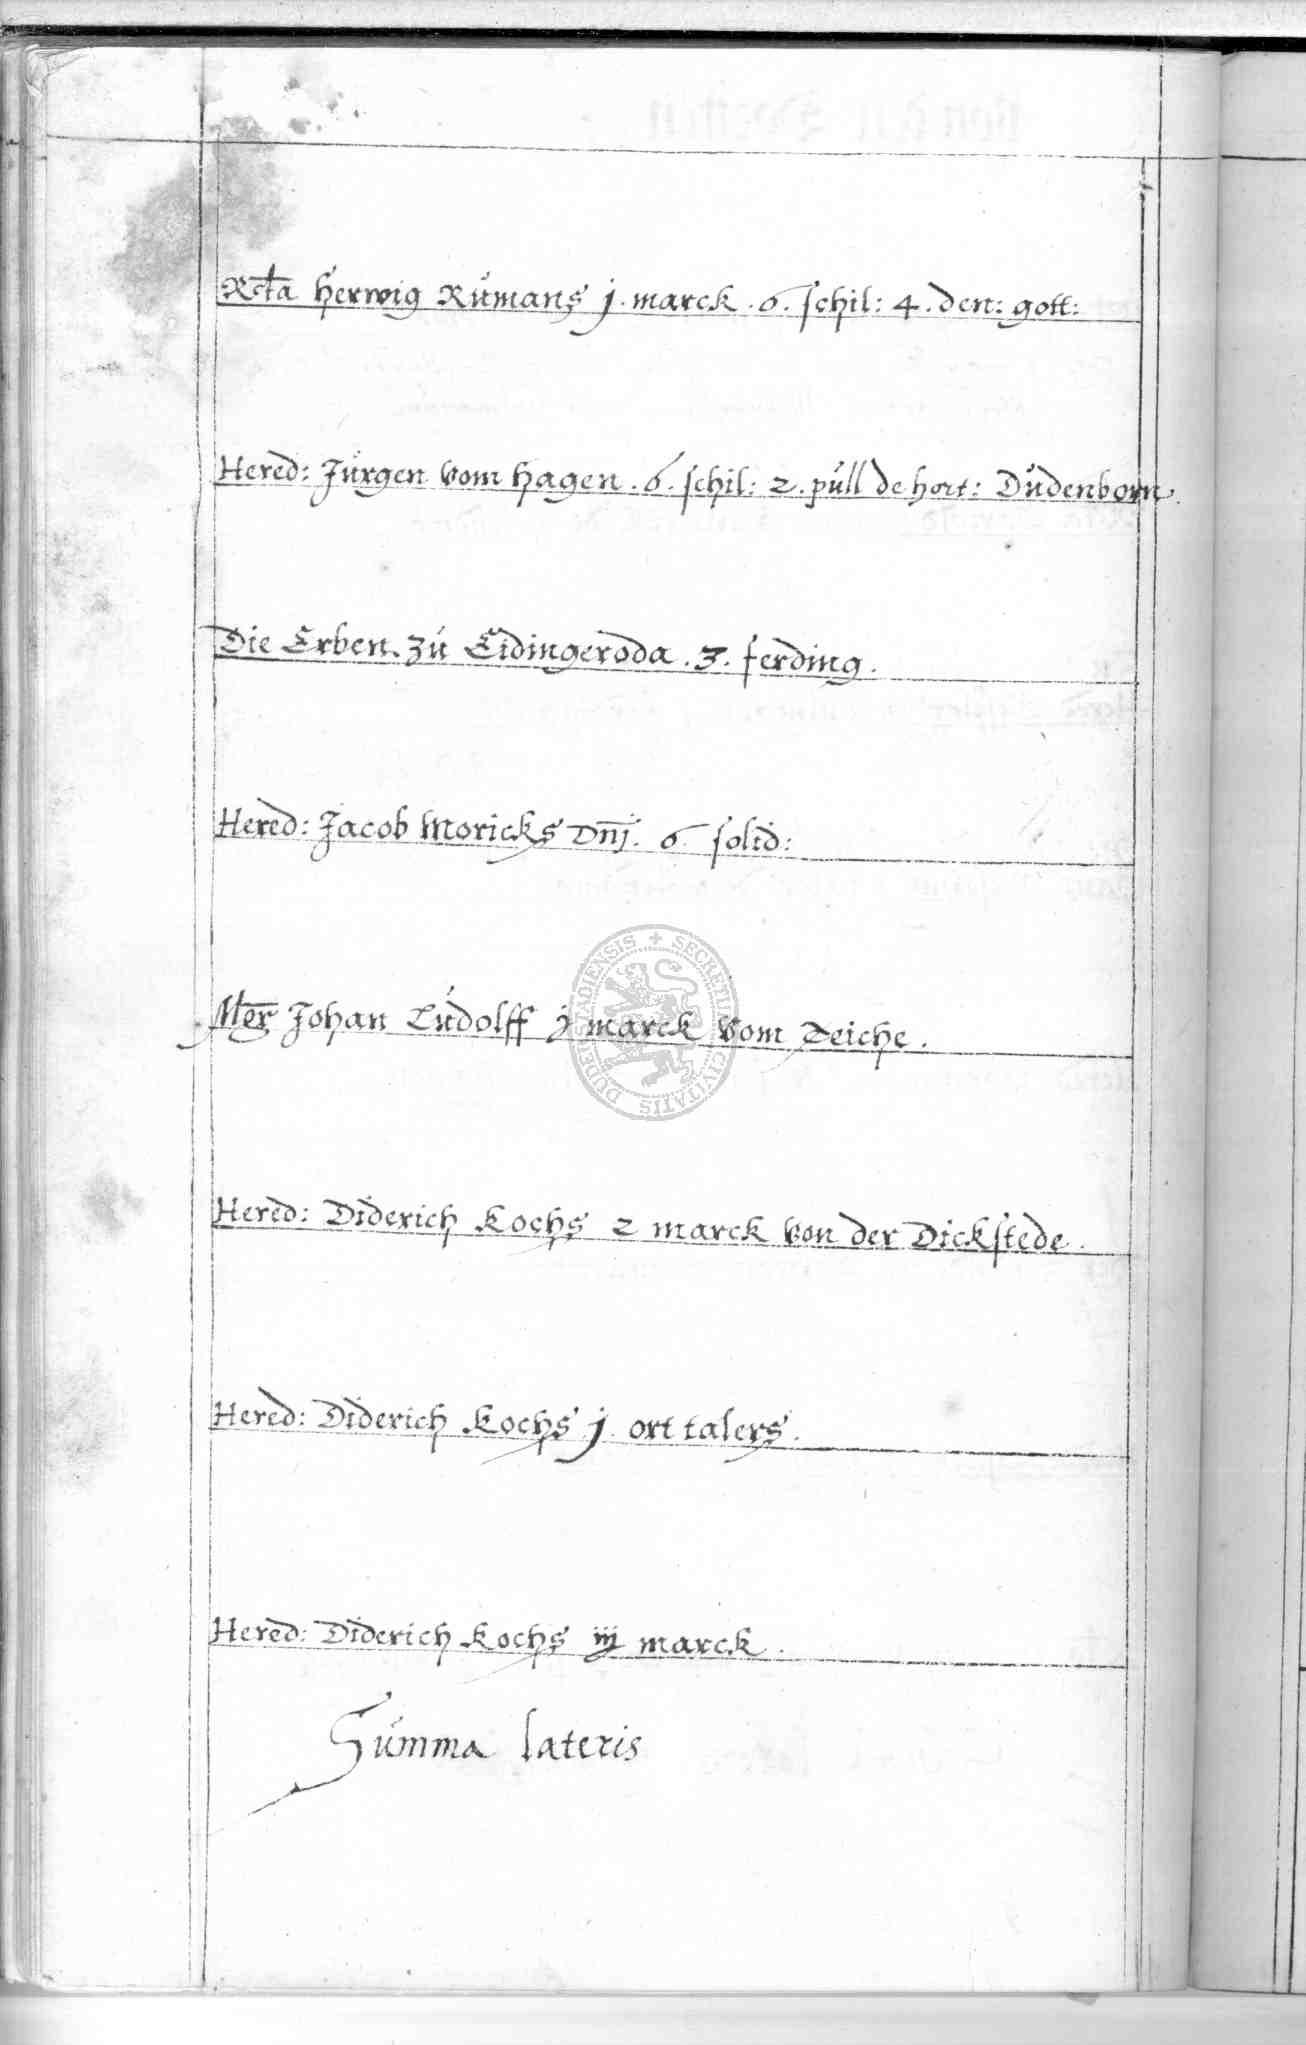 Rcta Herwig Rümans j. marck. 6. schil: 4. den: gott:
Hered: Jürgen vom Hagen. 6. schil: 2. püll de hort: Düdenborn.
Die Erben. zü Eidingeroda. 3. ferding.
Hered: Jacob Moricks Dnj. 6 solid:
Mer Johan Lüdolff j marck vom Teiche.
Hered: Diderich Kochs 2 marck von der Dickstede.
Hered: Diderich Kochs j. ort talers.
Hered: Diderich Kochs iij marck.
Sümma lateris
SECRETUM CIVITATIS DUDERSTADIENSIS